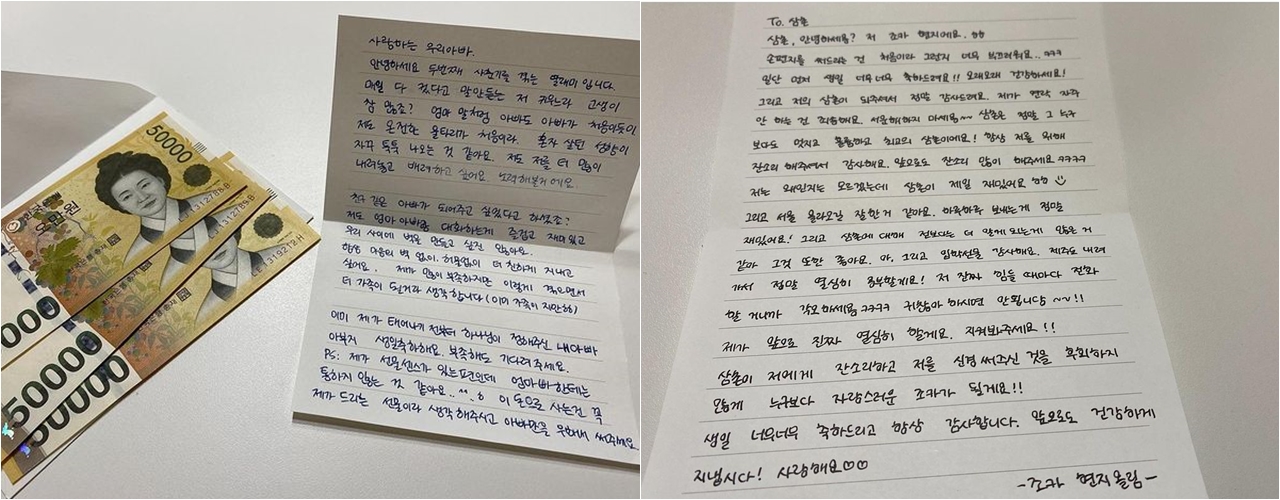 50000
한국은행
오만원
LC 1312788 B
1312789 B
LE 1319212 H
50000
50000
사랑하는 우리아빠.
안녕하세요 두번째 사춘기를 겪는 딸래미 입니다.
매일 다 컸다고 말안듣는 저 키우느라 고생이
참 많죠? 엄마 말처럼 아빠도 아빠가 처음이듯이
저도 온전한 울타리가 처음이라. 혼자 살던 성향이
자꾸 툭툭 나오는 것 같아요. 저도 저를 더 많이
내려놓고 배려하고 싶어요. 노력해볼거에요.
친구 같은 아빠가 되어주고 싶었다고 하셨죠?
저도 엄마아빠랑 대화하는게 즐겁고 재미있고
우리 사이에 벽을 만들고 싶진 않아요.
항상 마음의 벽 없이. 허물없이 더 친하게 지내고
싶어요. 제가 많이 부족하지만 이렇게 겪으면서
더 가족이 된거라 생각합니다 (이미 가족이지만ㅎㅎ)
이미 제가 태어나기 전부터 하나님이 정해주신 내아빠
아부지 생일축하해요. 부족해도 기다려주세요.
PS: 제가 선물센스가 있는편인데 엄마빠한테는
통하지 않는 것 같아요..^^.6 이 돈으로 사는건 꼭
제가 드리는 선물이라 생각해주시고 아빠만을 위해서 써주세요.
To. 삼촌
삼촌, 안녕하세용? 저 조카 현지에요. ㅎㅎ
손편지를 써드리는 건 처음이라 그런지 너무 부끄러워요.. ㅋㅋㅋ
일단 먼저 생일 너무너무 축하드려요!! 오래오래 건강하세요!
그리고 저의 삼촌이 되어주셔서 정말 감사드려요. 제가 연락 자주
안 하는 건 죄송해요. 서운해하지 마세용~~ 삼촌은 정말 그 누구
보다도 멋지고 훌륭하고 최고의 삼촌이에요! 항상 저를 위해
잔소리 해주셔서 감사해요. 앞으로도 잔소리 많이 해주세요 ㅋㅋㅋㅋ
저는 왜인지는 모르겠는데 삼촌이 제일 재밌어요 ㅎㅎ
그리고 서울 올라오길 잘한거 같아요. 하루하루 보내는게 정말
재밌어요! 그리고 삼촌에 대해 전보다는 더 알게 되는게 많은 거
같아 그것 또한 좋아요. 아, 그리고 입학선물 감사해요. 제주도 내려
가서 정말 열심히 공부할게요! 저 진짜 힘들 때마다 전화
할 거니까 각오하세용 ㅋㅋㅋㅋ 귀찮아 하시면 안됩니당 ~~!!
제가 앞으로 진짜 열심히 할게요. 지켜봐주세요!!
삼촌이 저에게 잔소리하고 저를 신경 써주신 것을 후회하지
않게 누구보다 자랑스러운 조카가 될게요!!
생일 너무너무 축하드리고 항상 감사합니다. 앞으로도 건강하게
지냅시다! 사랑해요♡♡
-조카 현지 올림-